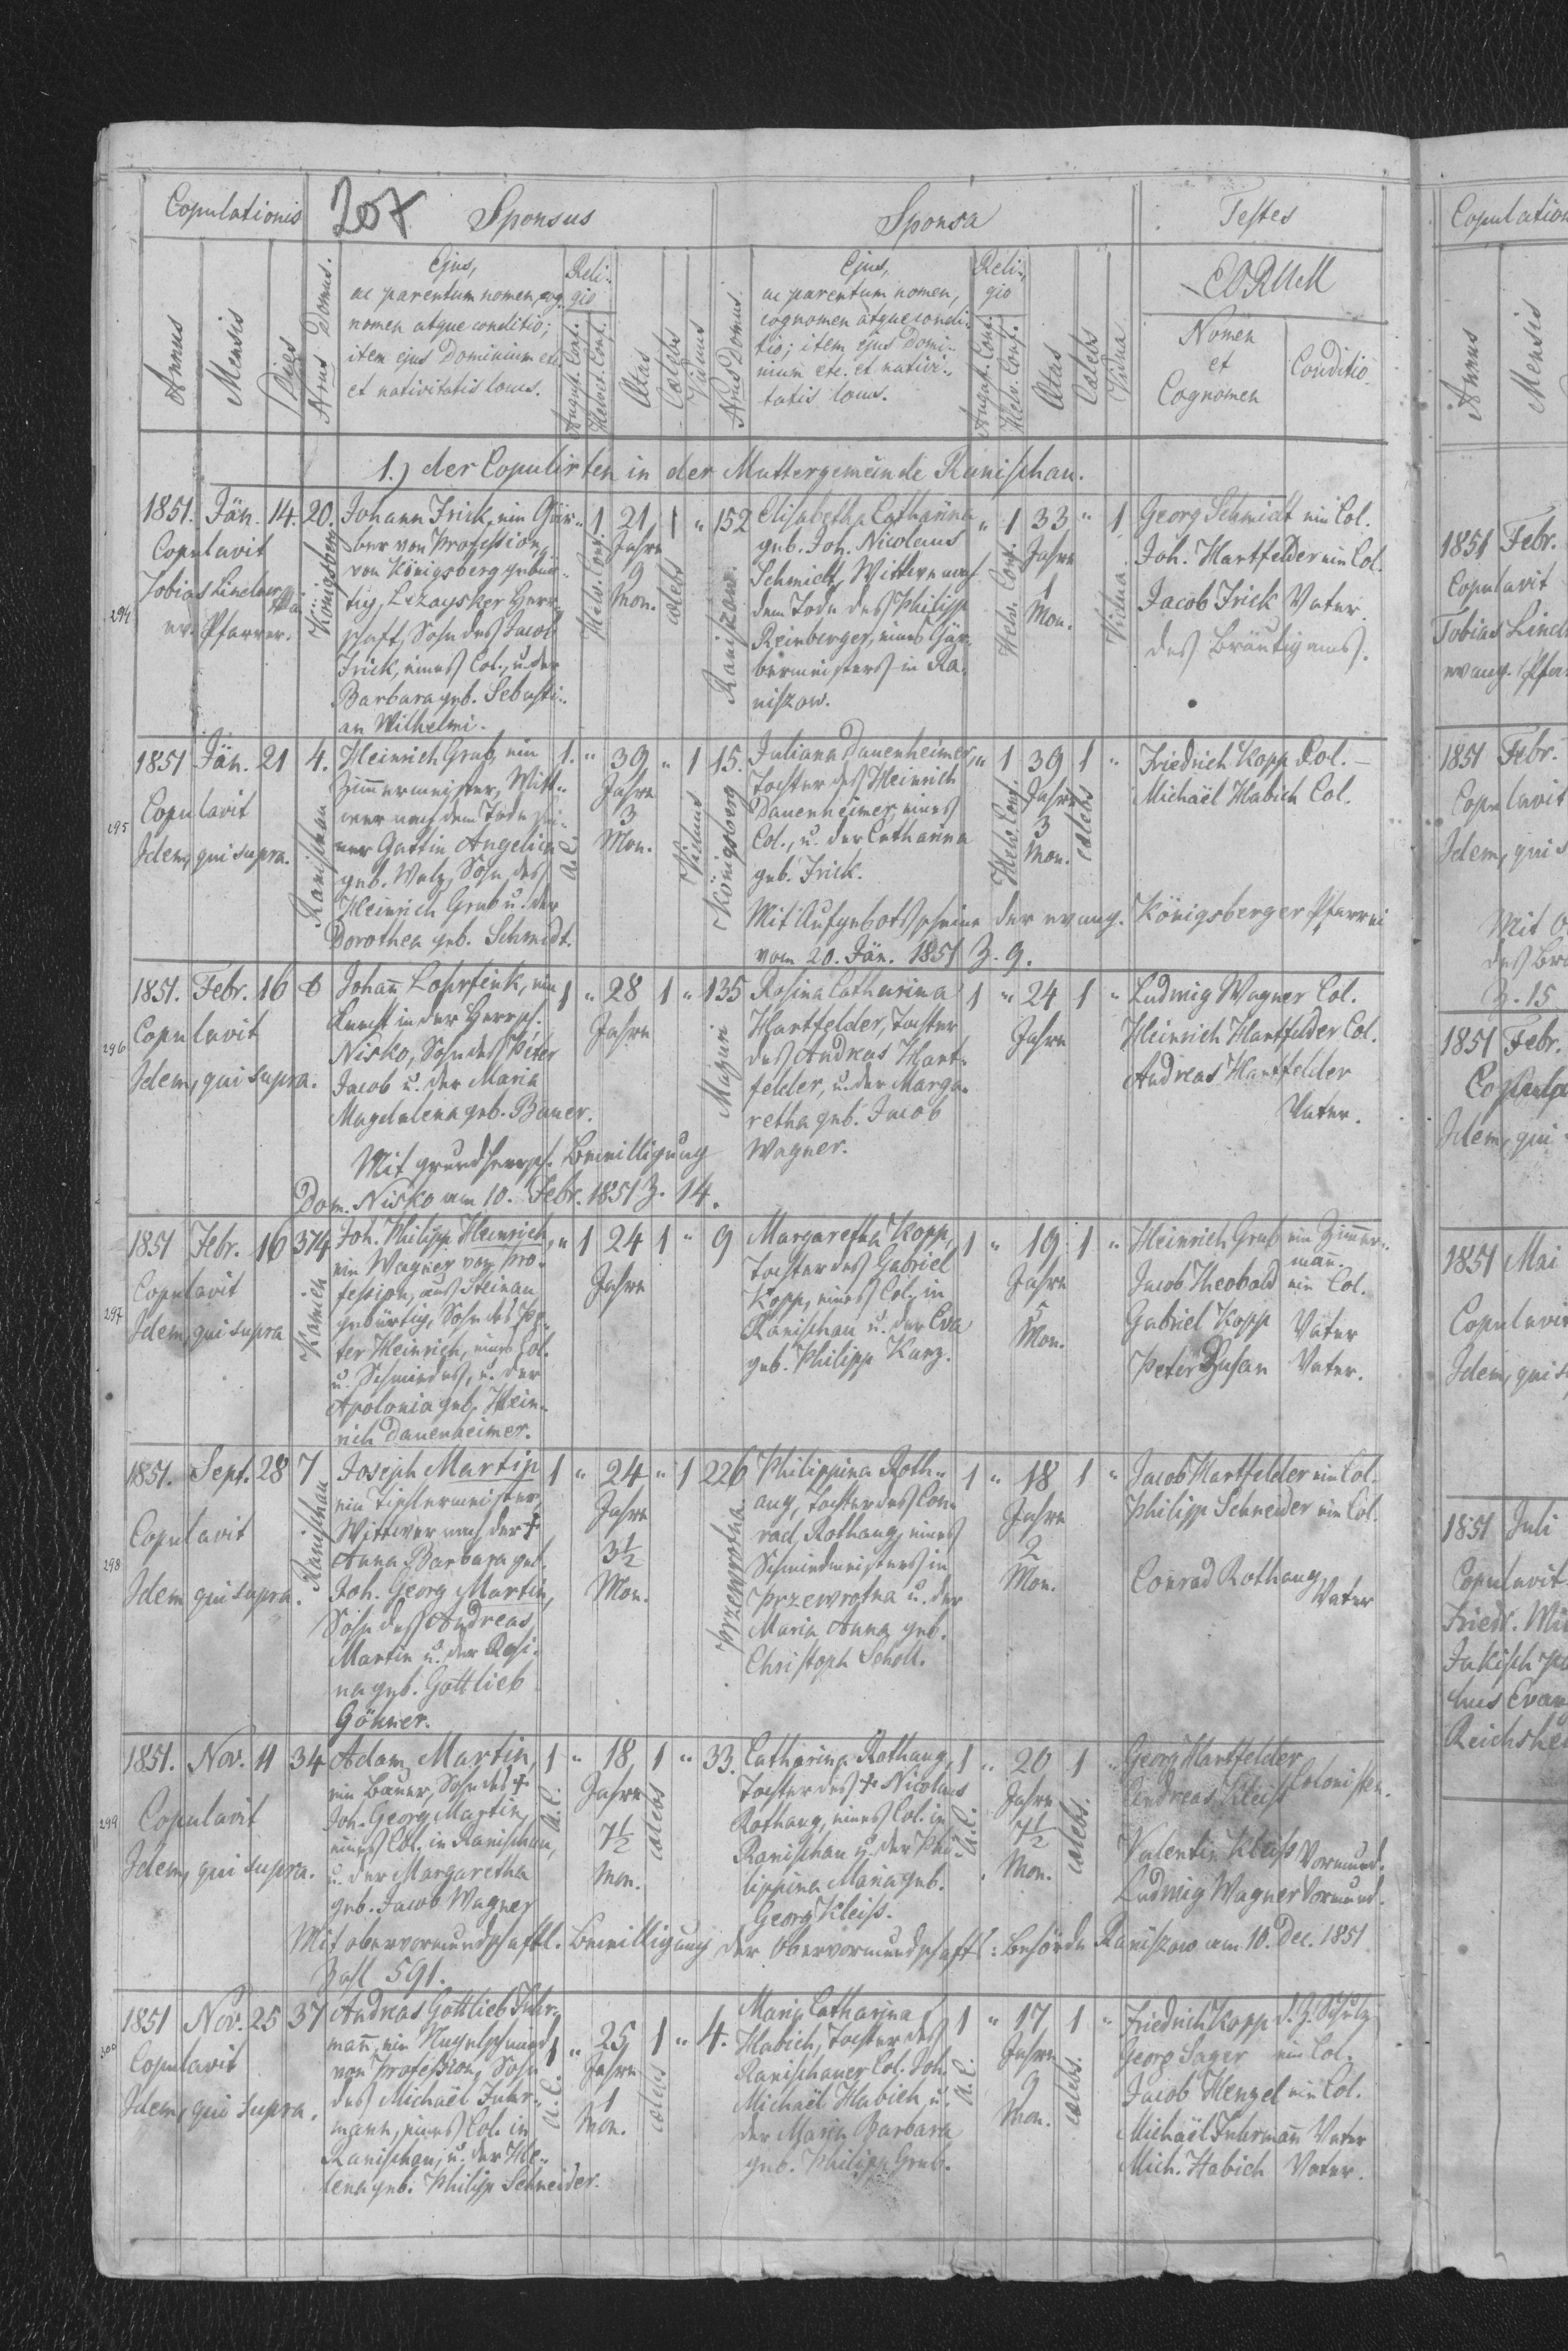 Copulationis
207
Sponsus
Sponsa
Testes
Annus
Mensis
Dies
Nrus Domus.
Ejus,
ac parentum nomen, cog-
nomen atque conditio;
item ejus Dominium etc.
et nativitatis locus.
Reli-
gio
August. Conf.
Helvet. Conf.
Ætas
Cælebs
Viduus
Nrus Domus.
Ejus,
ac parentum nomen,
cognomen atque condi-
tio; item ejus Domi-
nium etc. et nativi-
tatis locus.
Reli-
gio
August. Conf.
Helv. Conf.
Ætas
Cælebs
Vidua
EORUM
Nomen
et
Cognomen
Conditio.
1.) der Copulirten in der Muttergemeinde Ranischau.
294
1851. Jän. 14. 20.
Copulavit
Tobias Lindner
ev. Pfarrer.
Königsberg
Johann Frick, ein Gär-
ber von Profession,
von Königsberg gebür-
tig, Lezaysker Herr-
schaft, Sohn des Jacob
Frick, eines Col., u. der
Barbara geb. Sebasti-
an Wilhelmi.
" 1 21 1 "
Helv. Conf.
Jahre
9
Mon.
cælebs
152
Raniszow.
Elisabetha Catharina
geb. Joh. Nicolaus
Schmidt, Wittwe nach
dem Tode des Philipp
Reinberger, eines Gär-
bermeisters in Ra-
niszow.
" 1 33 " 1
Helv. Conf.
Jahre
1
Mon.
Vidua
Georg Schmidt ein Col.
Joh. Hartfelder ein Col.
Jacob Frick Vater
des Bräutigams.
295
1851 Jän. 21 4.
Copulavit
Idem, qui supra.
Ranischau
Heinrich Grub, ein
Zimmermeister, Witt-
wer nach dem Tode sei-
ner Gattin Angelica
geb. Walz, Sohn des
Heinrich Grub u. der
Dorothea geb. Schmidt.
1. " 39 " 1
A.C.
Jahre
3
Mon.
Viduus
15.
Königsberg
Juliana Dauenheimer,
Tochter des Heinrich
Dauenheimer, eines
Col., u. der Catharina
geb. Frick.
" 1 39 1 "
Helv. Conf.
Jahre
3
Mon.
cælebs
Friedrich Kopp Col.
Michaël Habich Col.
Mit Aufgebotsscheine der evang. Königsberger Pfarrei
vom 20. Jän. 1851 Z. 9.
296
1851. Febr. 16 6
Copulavit
Idem, qui supra.
Johañ
Knecht in der Herrsch.
Nisko, Sohn des Peter
Jacob u. der Maria
Magdalena geb. Bauer.
1 " 28 1 "
Jahre
135
Mazuri
Rosina Catharina
Hartfelder, Tochter
des Andreas Hart-
felder, u. der Marga-
retha geb. Jacob
Wagner.
1 " 24 1 "
Jahre
Ludwig Wagner Col.
Heinrich Hartfelder Col.
Andreas Hartfelder
Vater.
Mit grundherrsch. Bewilligung
Dom. Nisko am 10. Febr. 1851 Z. 14.
297
1851 Febr. 16 374
Copulavit
Idem, qui supra
Kamień
Joh. Philipp Heinrich,
ein Wagner von Pro-
fession, aus Steinau
gebürtig, Sohn des Pe-
ter Heinrich, eines Col.
u. Schmiedes, u. der
Apolonia geb. Hein-
rich Dauenheimer.
" 1 24 1 "
Jahre
9
Margaretha Kopp,
Tochter des Gabriel
Kopp, eines Col. in
Ranischau u. der Eva
geb. Philipp Kurz.
1 " 19 1 "
Jahre
5
Mon.
Heinrich Grub ein Zimmer-
mañ.
Jacob Theobald ein Col.
Gabriel Kopp Vater
Peter Vater.
298
1851. Sept. 28 7
Copulavit
Idem qui supra.
Ranischau
Joseph Martin
ein Tischlermeister,
Wittwer nach der †
Anna Barbara geb.
Joh. Georg Martin,
Sohn des Andreas
Martin u. der Rosi-
na geb. Gottlieb
Göhner.
1 " 24 " 1
Jahre
3½
Mon.
226
Przewrotna
Philippina Roth-
aug, Tochter des Con-
rad Rothaug, eines
Schmiedmeisters in
Przewrotna u. der
Maria Anna geb.
Christoph Scholl.
1 " 18 1 "
Jahre
2
Mon.
Jacob Hartfelder ein Col.
Philipp Schneider ein Col.
Conrad Rothaug
Vater
299
1851. Nov. 4 34
Copulavit
Idem, qui supra.
Adam Martin,
ein Bauer, Sohn des †
Joh. Georg Martin,
eines Col. in Ranischau,
u. der Margaretha
geb. Jacob Wagner
1 " 18 1 "
A.C.
Jahre
7½
Mon.
cælebs
33.
Catharina Rothaug,
Tochter des † Nicolaus
Rothaug, eines Col. in
Ranischau u. der Phi-
lippina Maria geb.
Georg Kleiss.
1 " 20 1
A.C.
Jahre
7½
Mon.
cælebs.
Georg Hartfelder
Andreas Kleiss Colonisten.
Valentin Kleiss Vormund.
Ludwig Wagner Vormund.
Mit obervormundschaftl. Bewilligung der Obervormundschafts-Behörde Raniszow am 10. Dec. 1851
Zahl 591.
300
1851 Nov. 25 37
Copulavit
Idem, qui supra.
Andreas Gottlieb Fuhr-
mañ, ein Nagelschmied
von Profession, Sohn
des Michaël Fuhr-
mann, eines Col. in
Ranischau, u. der He-
lena geb. Philipp Schneider.
1 " 25 1 "
A.C.
Jahre
1
Mon.
cælebs
4.
Maria Catharina
Habich, Tochter des
Ranischauer Col. Joh.
Michaël Habich, u.
der Maria Barbara
geb. Philipp Grub.
1 " 17 1 "
A.C.
Jahre
9
Mon.
cælebs.
Friedrich Kopp d. Z. Schulz
Georg Sager ein Col.
Jacob Henzel ein Col.
Michaël Fuhrmañ Vater
Mich. Habich Vater.
Copulation
Annus
Mensis
1851 Febr.
Copulavit
Tobias Lind
evang. Pfar
1851 Febr.
Copulavit
Idem, qui s
Mit
des
Z. 15
1851 Febr.
Idem, qui
1851 Mai
Copulavit
Idem, qui s
1851 Juli
Copulavit
Friedr.
Evan